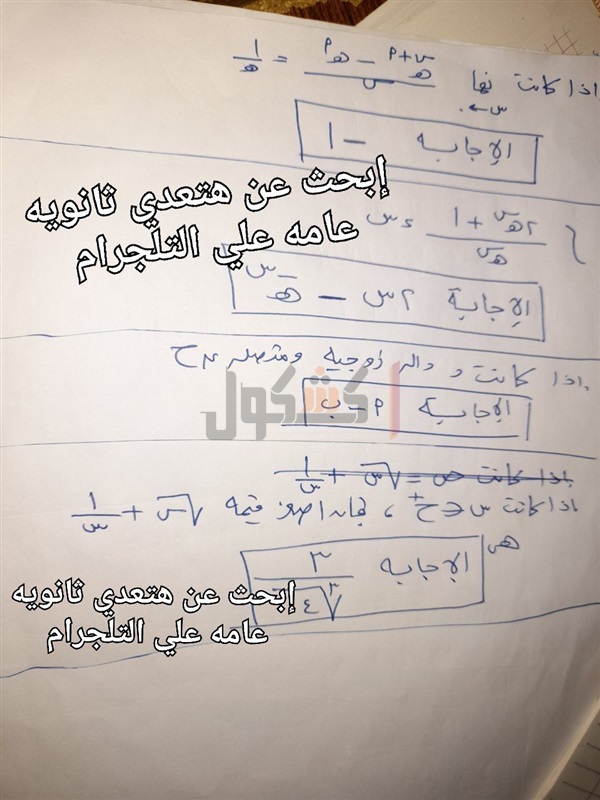 اذا كانت نها س←٠ (هـ^(س+م) − هـ^م) / س = ١/هـ
الإجابه − ١
إبحث عن هتعدي ثانويه
عامه علي التلجرام
∫ (٢هـ^س + ١) / هـ^س ء س
الإجابة ٢س − هـ^−س
اذا كانت د داله زوجيه ومتصله على ح
كشكول
الإجابة م − ب
اذا كانت ص = √س + ١/س
اذا كانت س ∈ ح+ ، فان اصغر قيمه √س + ١/س
هى
الإجابه ٣ / ∛٤
إبحث عن هتعدي ثانويه
عامه علي التلجرام